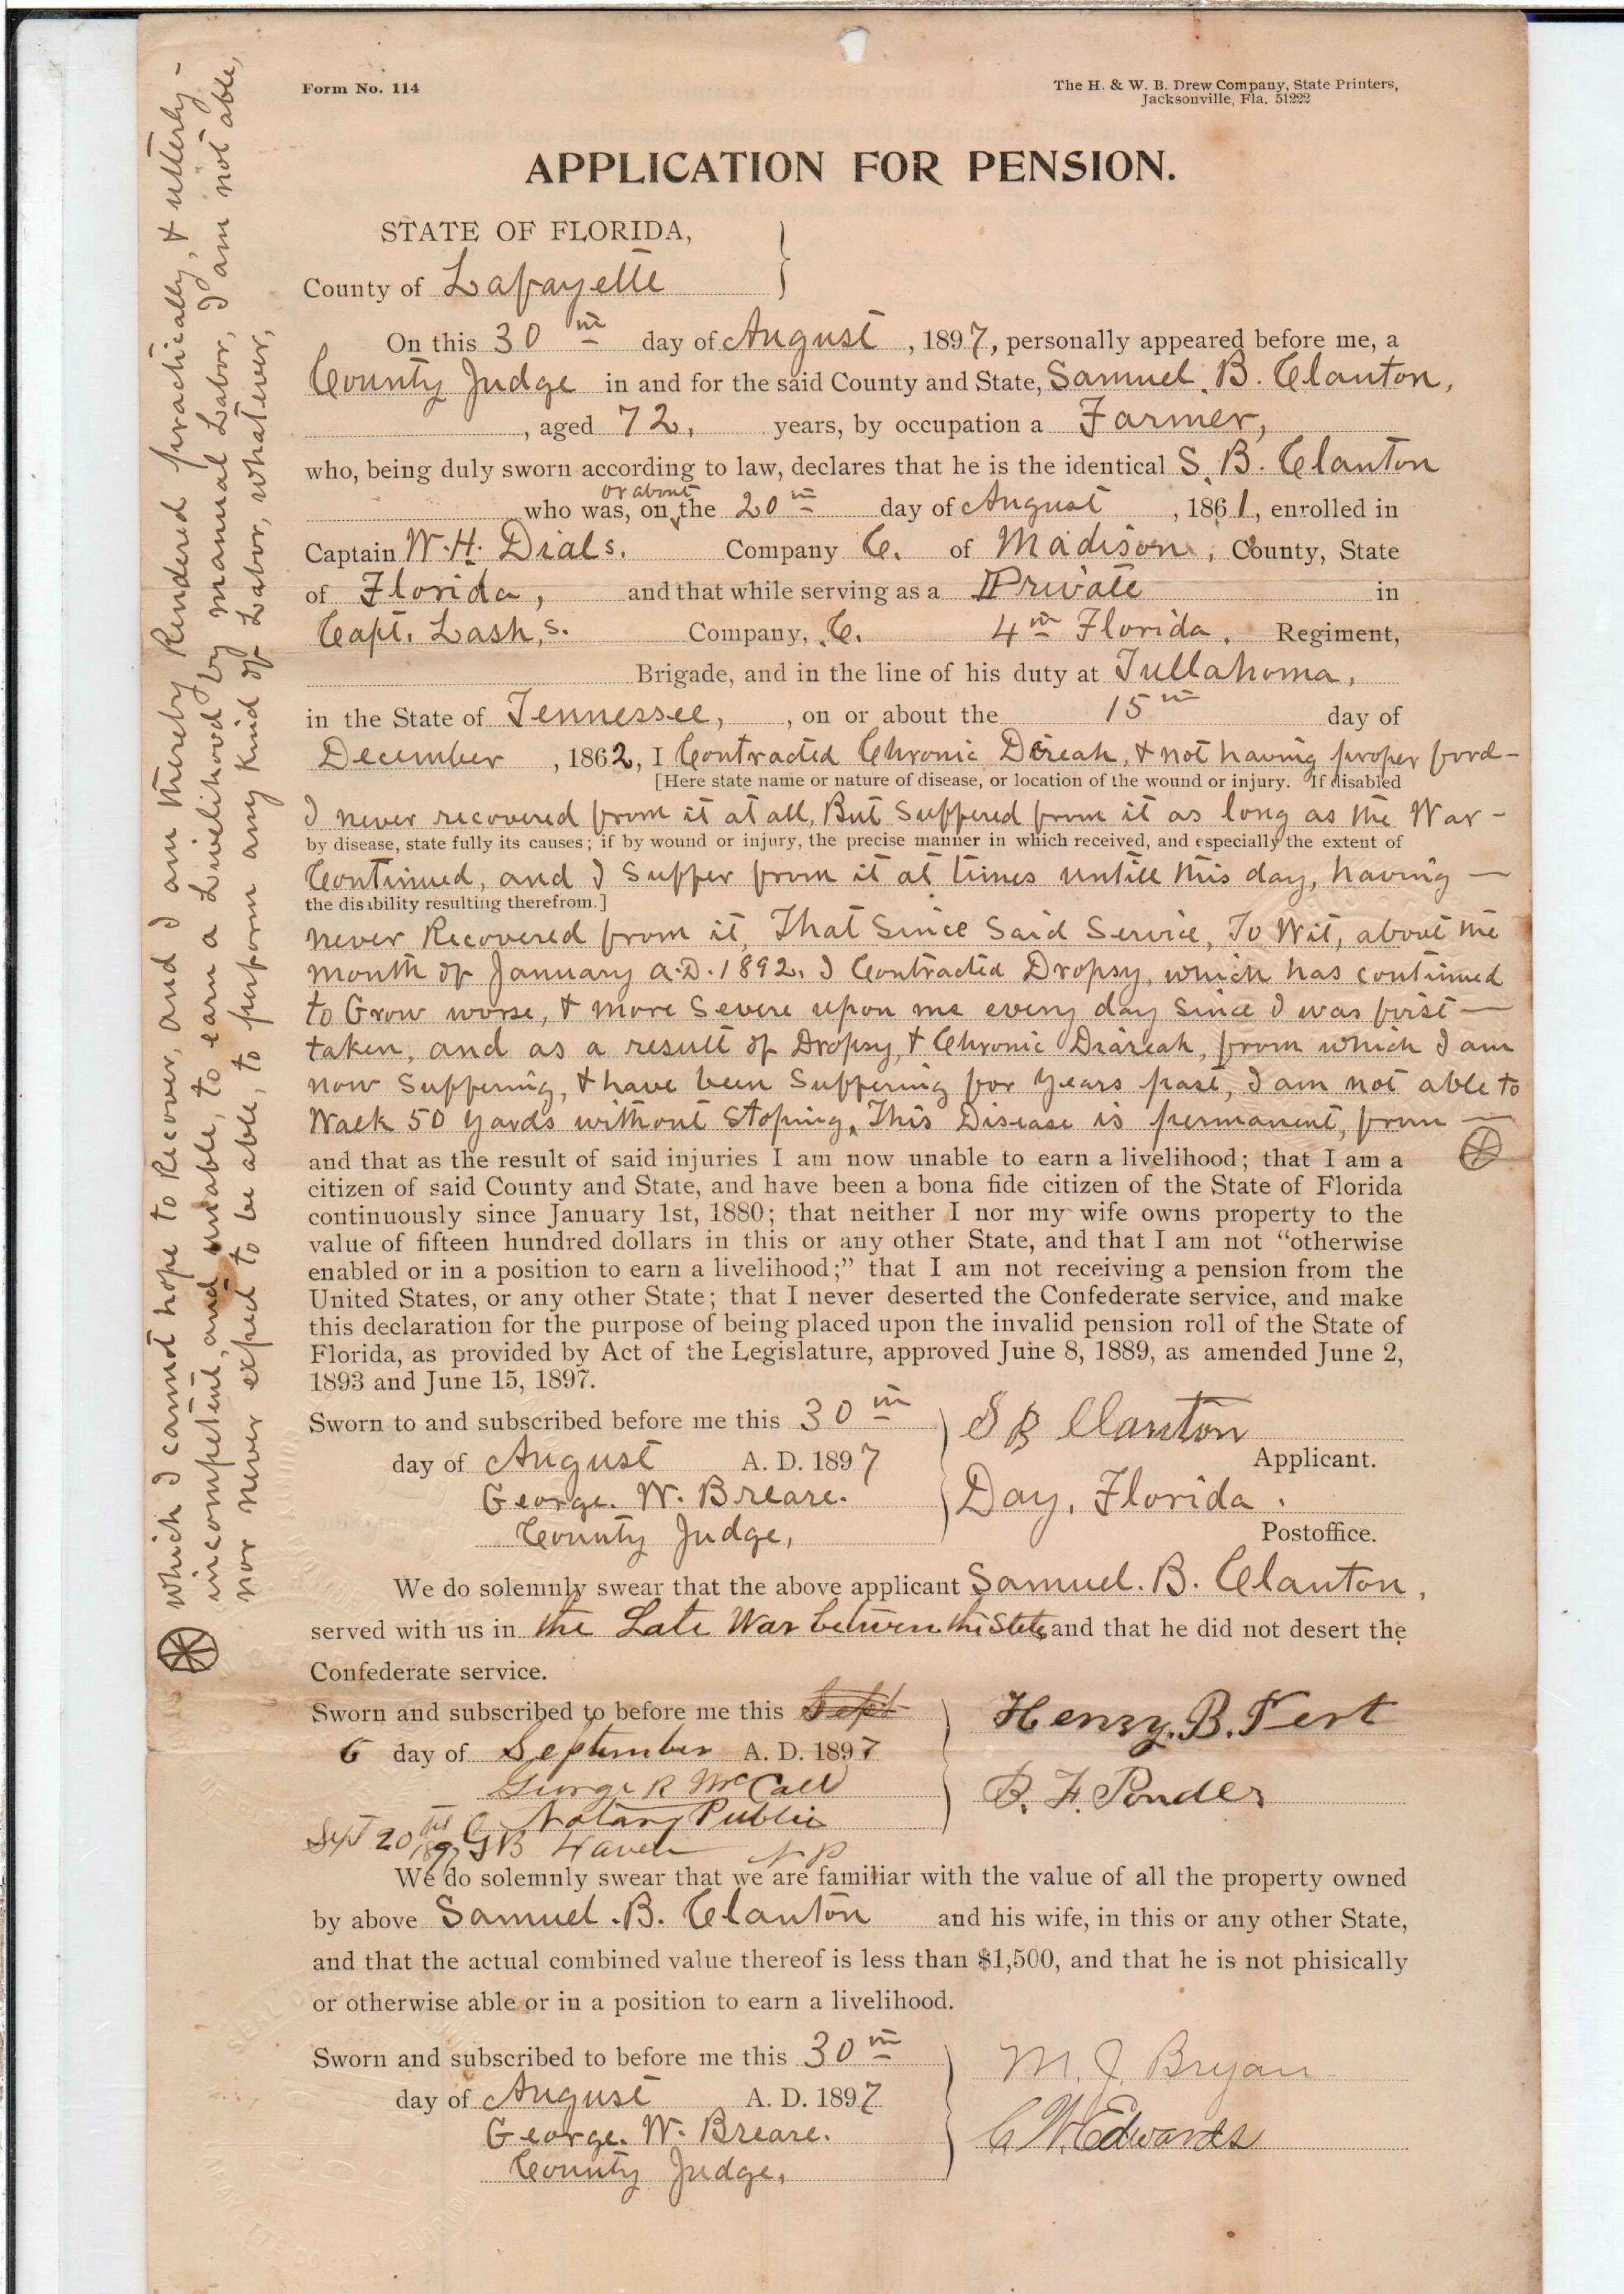 Form No. 114
The H. & W. B. Drew Company, State Printers,
Jacksonville, Fla. 51222
APPLICATION FOR PENSION.
STATE OF FLORIDA,
County of Lafayette
On this 30th day of August, 1897, personally appeared before me, a
County Judge in and for the said County and State, Samuel. B. Clanton,
, aged 72, years, by occupation a Farmer,
who, being duly sworn according to law, declares that he is the identical S. B. Clanton
or about
who was, on the 20th day of August, 1861, enrolled in
Captain W. H. Dials. Company C. of Madison, County, State
of Florida, and that while serving as a Private in
Capt. Lash,s. Company, C. 4th Florida. Regiment,
Brigade, and in the line of his duty at Tullahoma,
in the State of Tennessee, , on or about the 15th day of
December, 1862, I Contracted Chronic Direah, & not having proper food-
[Here state name or nature of disease, or location of the wound or injury. If disabled
I never recovered from it at all, But Suffered from it as long as the War-
by disease, state fully its causes; if by wound or injury, the precise manner in which received, and especially the extent of
Continued, and I Suffer from it at times untill this day, having —
the disability resulting therefrom.]
never Recovered from it, That Since Said Service, To Wit, about the
month of January A.D. 1892. I Contracted Dropsy, which has continued
to Grow worse, & more Severe upon me every day Since I was first —
taken, and as a result of Dropsy, & Chronic Diareah, from which I am
now Suffering, & have been Suffering for Years past, I am not able to
Walk 50 Yards without Stoping, This Disease is permanent, from —
and that as the result of said injuries I am now unable to earn a livelihood; that I am a
citizen of said County and State, and have been a bona fide citizen of the State of Florida
continuously since January 1st, 1880; that neither I nor my wife owns property to the
value of fifteen hundred dollars in this or any other State, and that I am not "otherwise
enabled or in a position to earn a livelihood;" that I am not receiving a pension from the
United States, or any other State; that I never deserted the Confederate service, and make
this declaration for the purpose of being placed upon the invalid pension roll of the State of
Florida, as provided by Act of the Legislature, approved June 8, 1889, as amended June 2,
1893 and June 15, 1897.
which I cannot hope to Recover, and I am thereby Rendered practically, & utterly-
incompetent, and unable, to earn a Livelihood by manual Labor, I am not able,
nor never expect to be able, to perform any kind of Labor, whatever,
Sworn to and subscribed before me this 30th
S B Clanton
Applicant.
day of August A. D. 1897
George. W. Breare.
Day, Florida.
County Judge,
Postoffice.
We do solemnly swear that the above applicant Samuel. B. Clanton,
served with us in the Late War between the States and that he did not desert the
Confederate service.
Sworn and subscribed to before me this Sept
Henry. B. Fert
6 day of September A. D. 1897
George R McCall
B. F. Ponder
Notary Public
Sept 20th 1897 G B N P
We do solemnly swear that we are familiar with the value of all the property owned
by above Samuel. B. Clanton and his wife, in this or any other State,
and that the actual combined value thereof is less than $1,500, and that he is not phisically
or otherwise able or in a position to earn a livelihood.
Sworn and subscribed to before me this 30th
M. J. Bryan
day of August A. D. 1897
George. W. Breare.
C W. Edwards
County Judge,